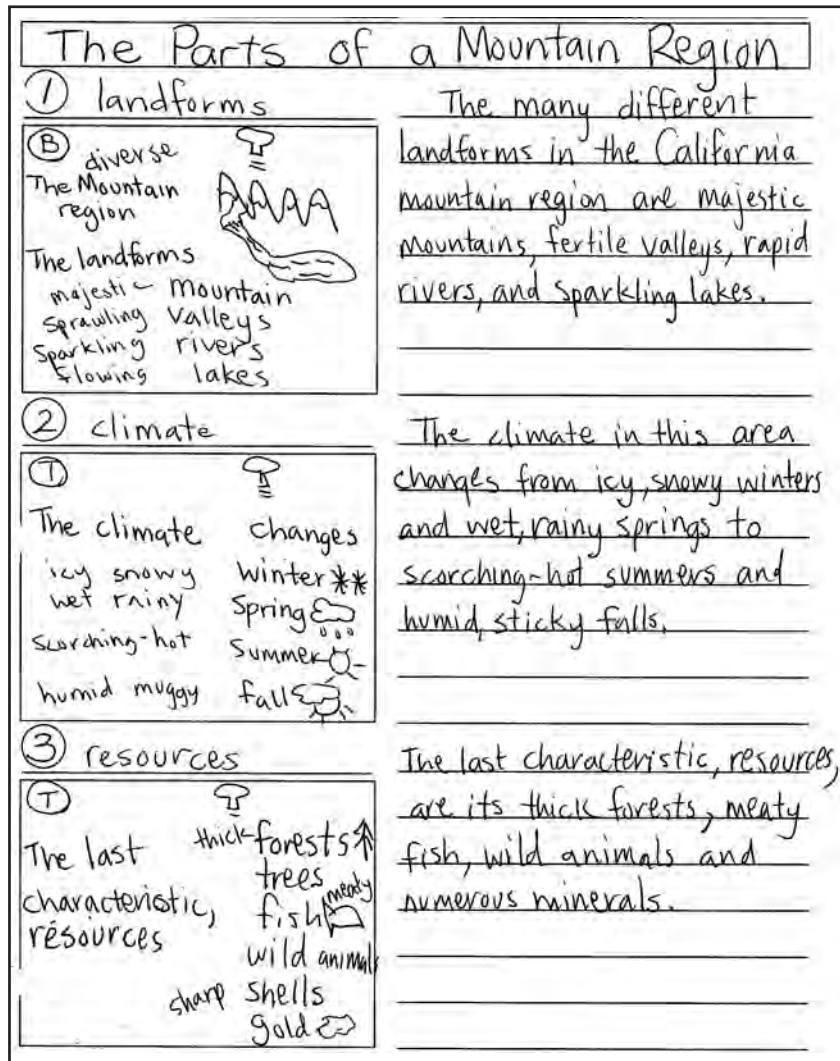 The Parts of a Mountain Region
① landforms
Ⓑ
diverse
The Mountain
region
The landforms
majestic mountain
sprawling valleys
sparkling rivers
flowing lakes
The many different
landforms in the California
mountain region are majestic
mountains, fertile valleys, rapid
rivers, and sparkling lakes.
② climate
Ⓣ
The climate changes
icy snowy winter
wet rainy Spring
scorching-hot Summer
humid muggy fall
The climate in this area
changes from icy, snowy winters
and wet, rainy springs to
scorching-hot summers and
humid, sticky falls.
③ resources
Ⓣ
The last
characteristic,
resources
thick forests
trees
meaty
fish
wild animals
sharp shells
gold
The last characteristic, resources,
are its thick forests, meaty
fish, wild animals and
numerous minerals.